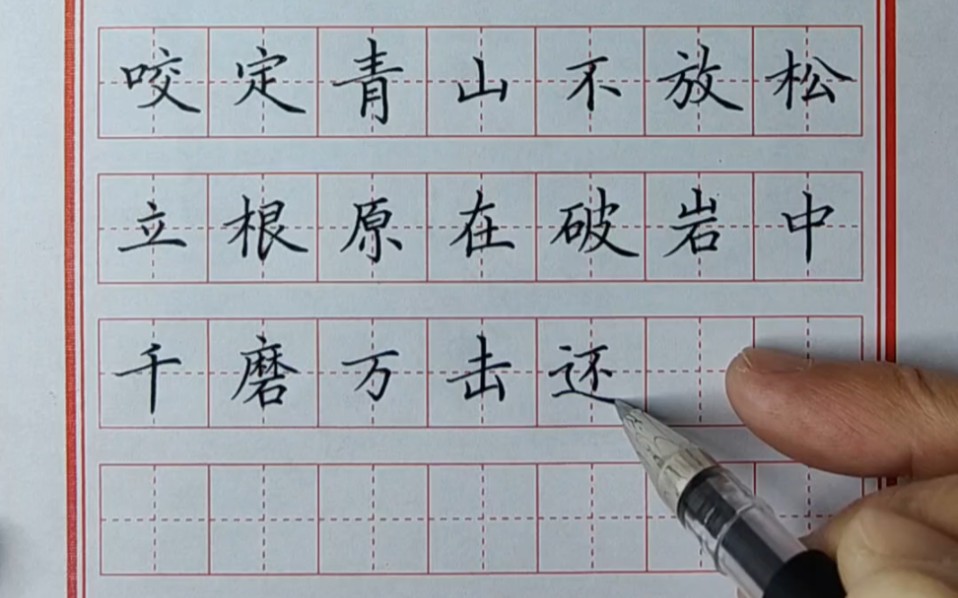 咬定青山不放松
立根原在破岩中
千磨万击还